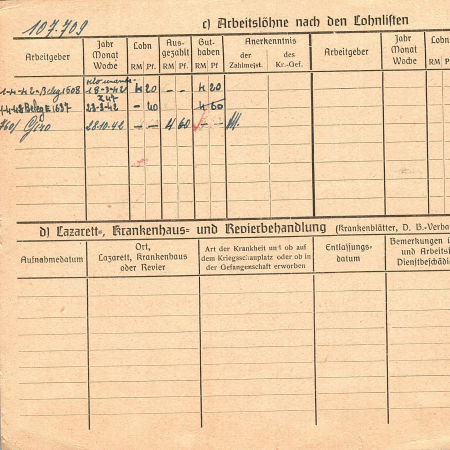 107.709
c) Arbeitslöhne nach den Lohnlisten
Arbeitgeber Jahr Monat Woche Lohn RM Pf. Ausgezahlt RM Pf. Guthaben RM Pf Anerkenntnis der Zahlmeist. des Kr.-Gef. Arbeitgeber Jahr Monat Woche Lohn RM
1-4-42-Beleg 1608 18-3-42 4 20 - - 4 20
Beleg 1697 28-3-42 - 40 4 60
Giro 28.10.42 - - 4 60 - -
d) Lazarett-, Krankenhaus- und Revierbehandlung (Krankenblätter, D. B.-Verba
Aufnahmedatum Ort, Lazarett, Krankenhaus oder Revier Art der Krankheit und ob auf dem Kriegsschauplatz oder ob in der Gefangenschaft erworben Entlassungsdatum Bemerkungen ü und Arbeits Dienstbeschädi